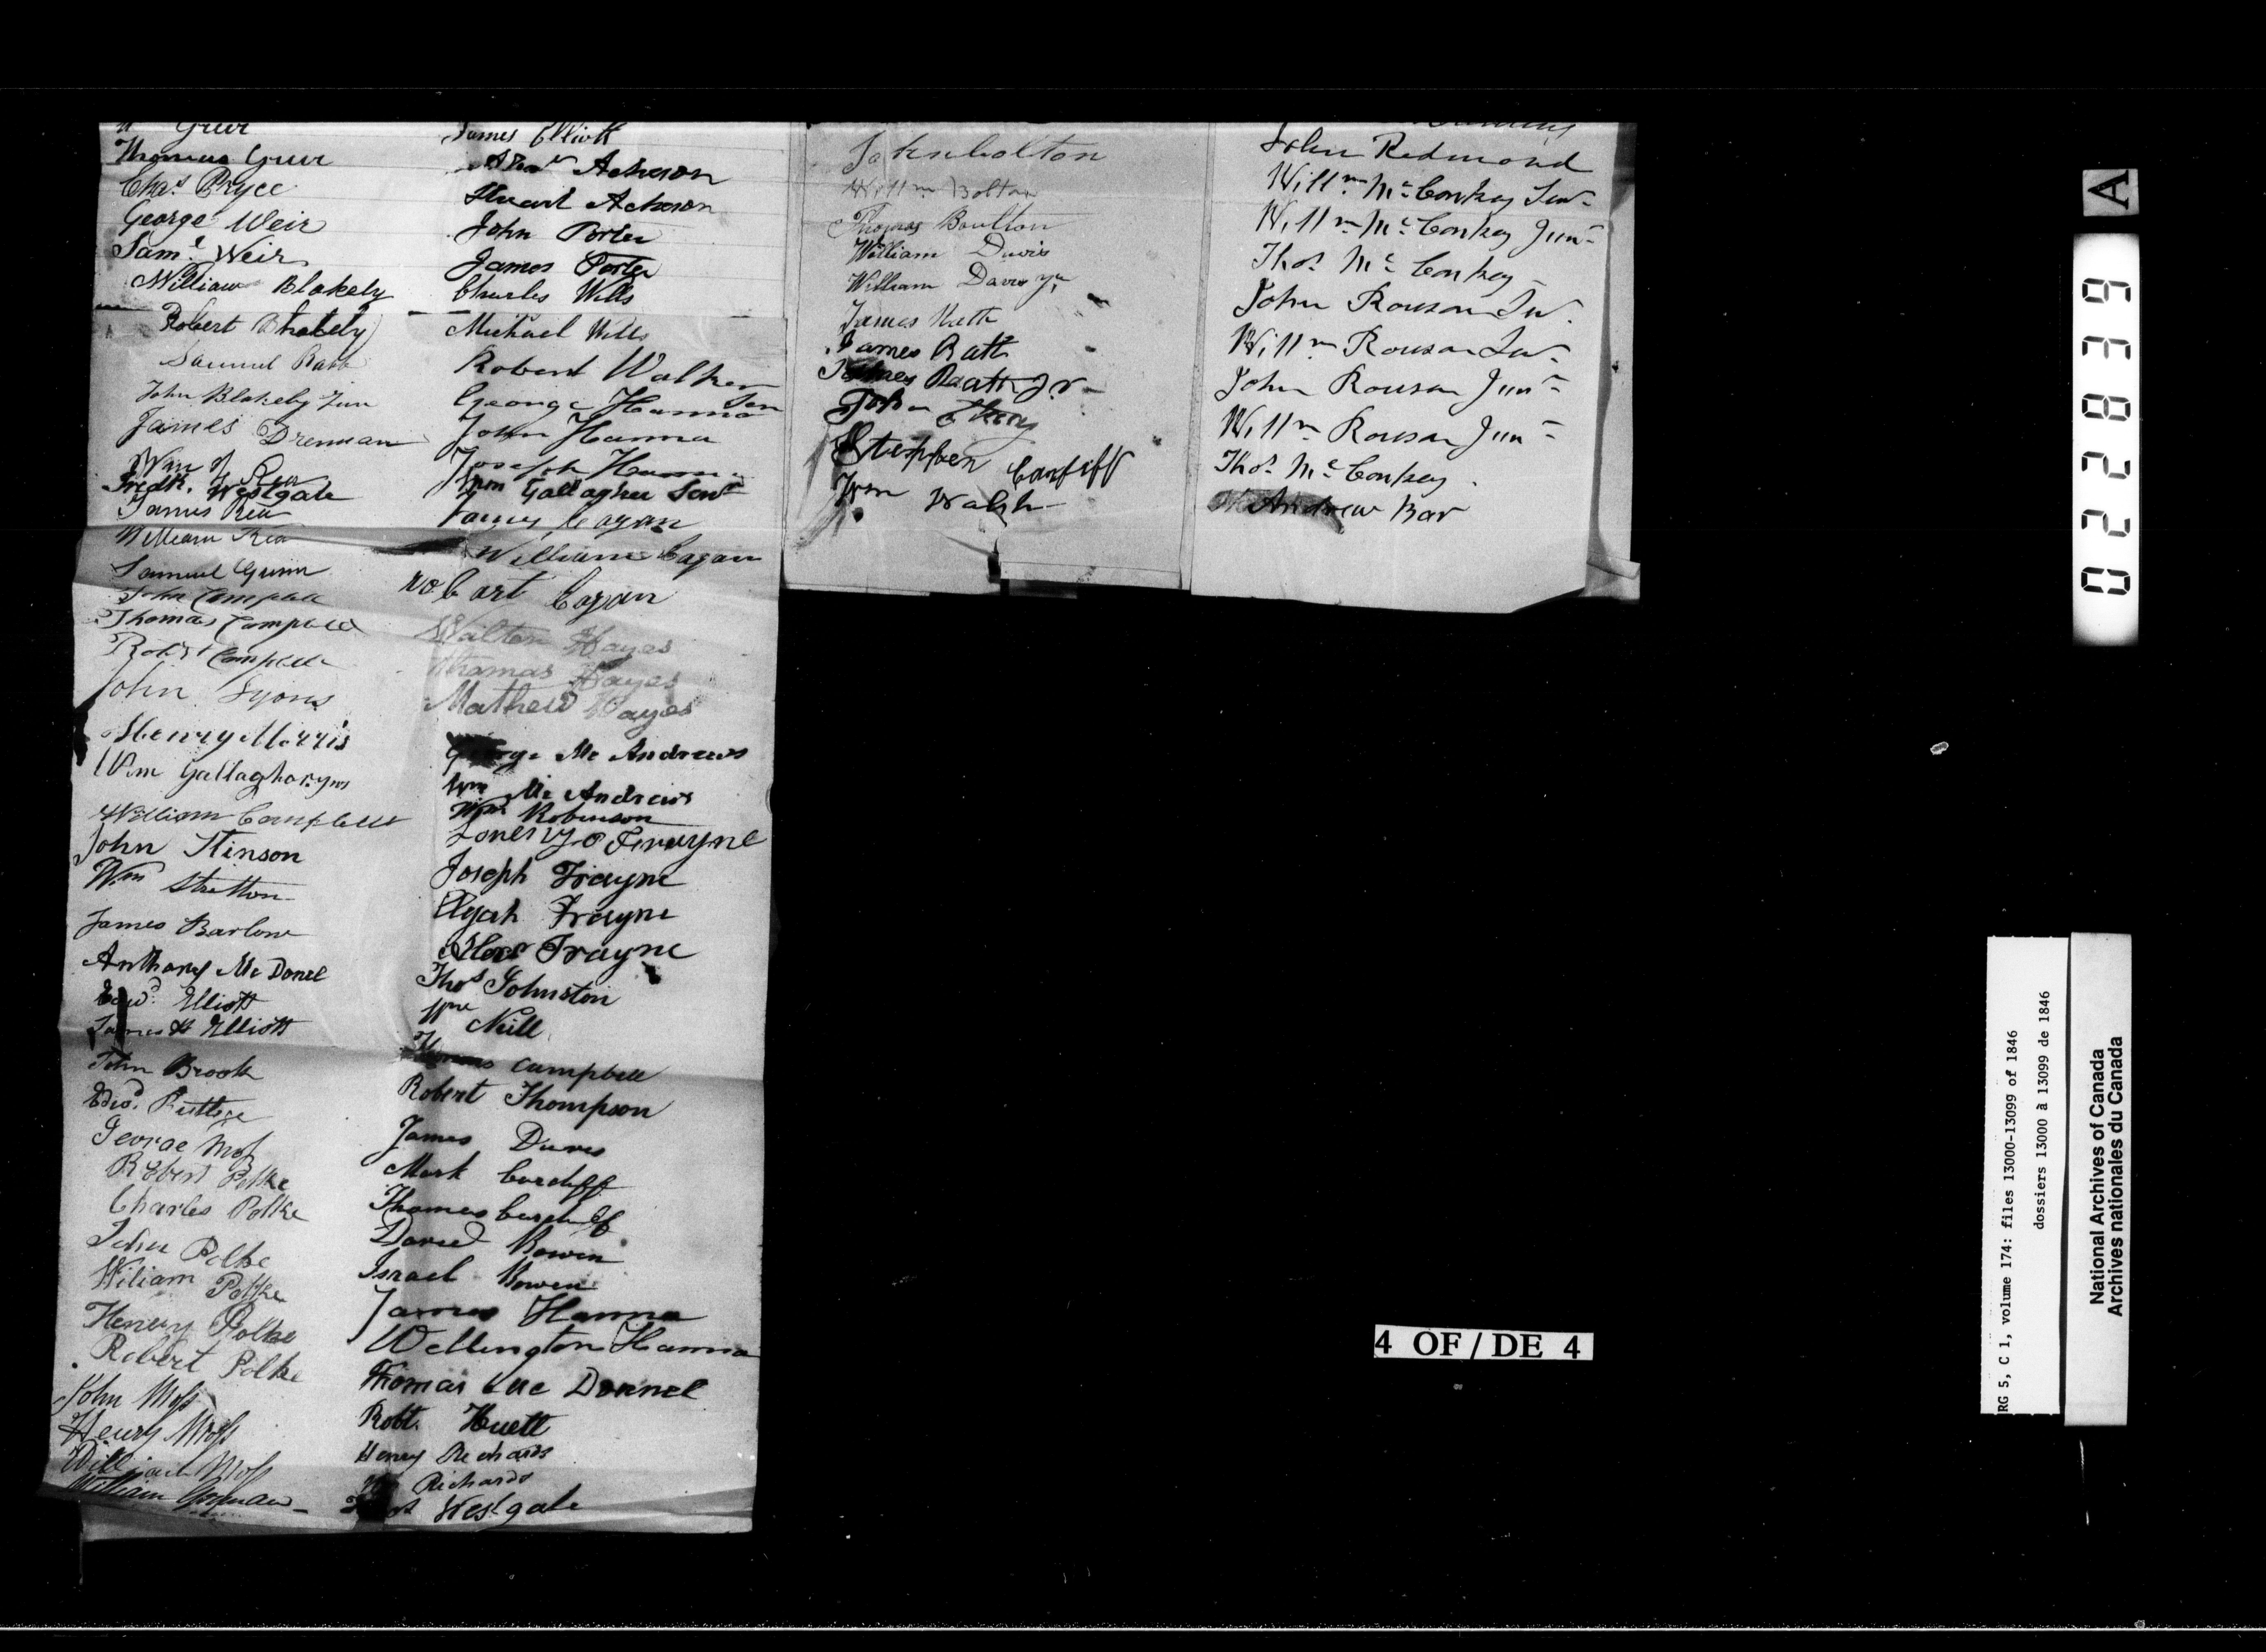 Greer
Thomas Greer
Chas Pryce
George Weir
Saml Weir
William Blakely
Robert Blakely
Samuel Rabb
John Blakely Jun
James Drennan
Wm Rea
Fredk. Westgate
James Rea
William Rea
Samuel Gunn
John Campbell
Thomas Campbell
Robt Campbell
John Lyons
Henry Morris
Wm Gallaghar
William Campbell
John Stinson
Wm Stretton
James Barlow
Anthony Mc Donel
Edwd Elliott
James H Elliott
John Brook
Edwd
George Moss
Robert Polke
Charles Polke
John Polke
Wiliam Polke
Henery Polke
Robert Polke
John Moss
Henry Moss
William Moss
William Gorman
James Elliott
Acheson
Stuart Acheson
John Porter
James Porter
Charles Wills
Michael Wills
Robert Walker
George Hanna Sen
John Hanna
Joseph Hanna
Wm Gallagher Senr
James Cagan
William Cagan
robart Cagan
Walton Hayes
Thomas Hayes
Mathew Hayes
George Mc Andrews
Wm Mc Andrews
Wm Robinson
Joseph Trayne
Elijah Trayne
Trayne
Thos Johnston
Wm Neill
Thomas Campbell
Robert Thompson
James Davis
Mark Curdiff
Thomas
David Bowen
Israel Bowen
James Hanna
Wellington Hanna
Thomas Mc Donnel
Robt. Huett
Henry Richards
Wm Richards
Westgate
John bolton
Willm Bolton
Thomas Boulton
William Davis
William Davis Jr
James Nath
James Rath
James Raath Jr
John
Stephen
Wm Walsh
John Redmond
Willm McConkey Senr
Willm McConkey Junr
Thos McConkey
John Rouson Senr
Willm Rouson Senr
John Rouson Junr
Willm Rouson Junr
Thos McConkey
Andrew Bar
A
022839
4 OF / DE 4
RG 5, C 1, volume 174: files 13000-13099 of 1846
dossiers 13000 à 13099 de 1846
National Archives of Canada
Archives nationales du Canada